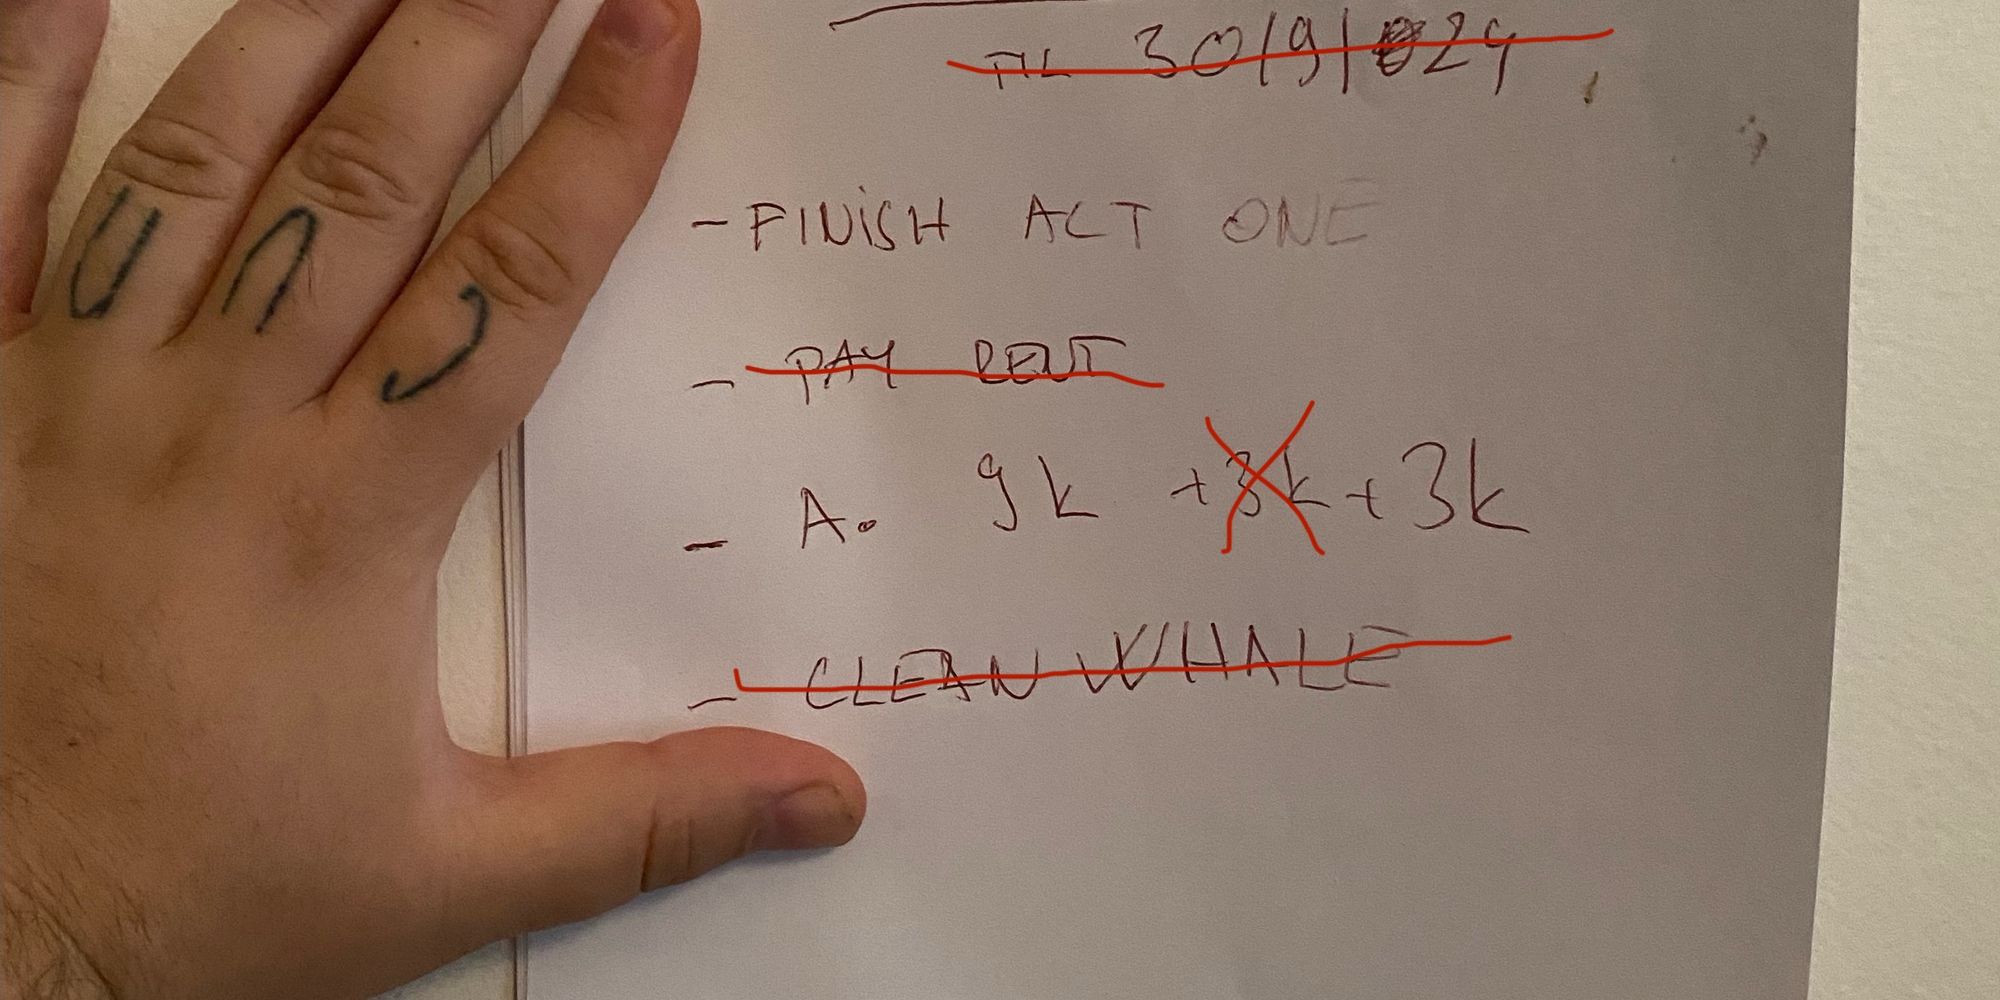 TIL 30/9/024
- FINISH ACT ONE
- PAY RENT
- A. 9k +3k +3k
- CLEAN WHALE